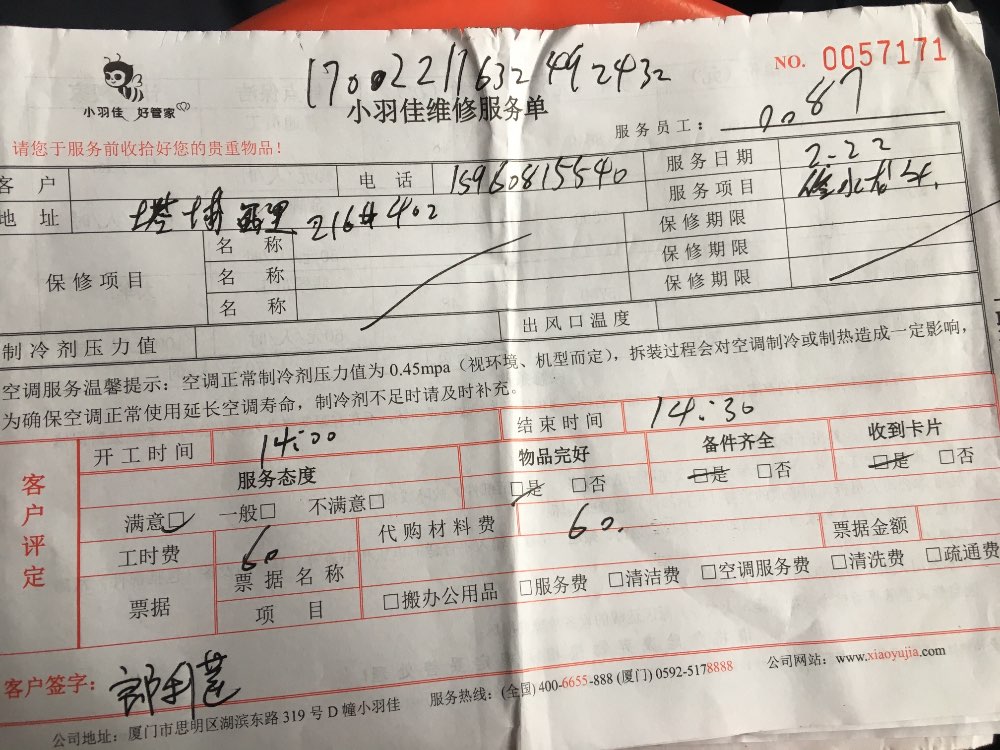 170022117632492432
NO. 0057171
小羽佳 好管家
小羽佳维修服务单
服务员工: 0087
请您于服务前收拾好您的贵重物品!
客 户 电 话 15960815540 服务日期 2.22
地 址 塔埔西里 216# 402 服务项目 修水龙头.
保修项目 名 称 保修期限
名 称 保修期限
名 称 保修期限
制冷剂压力值 出风口温度
空调服务温馨提示: 空调正常制冷剂压力值为 0.45mpa (视环境、机型而定), 拆装过程会对空调制冷或制热造成一定影响,
为确保空调正常使用延长空调寿命, 制冷剂不足时请及时补充。
客户评定
开工时间 14:00 结束时间 14:30
服务态度 物品完好 备件齐全 收到卡片
满意□ 一般□ 不满意□ □是 □否 □是 □否 □是 □否
工时费 60 代购材料费 60. 票据金额
票据 票据名称 □搬办公用品 □服务费 □清洁费 □空调服务费 □清洗费 □疏通费
项 目
客户签字:
服务热线: (全国) 400-6655-888 (厦门) 0592-5178888 公司网站: www.xiaoyujia.com
公司地址: 厦门市思明区湖滨东路 319 号 D 幢小羽佳